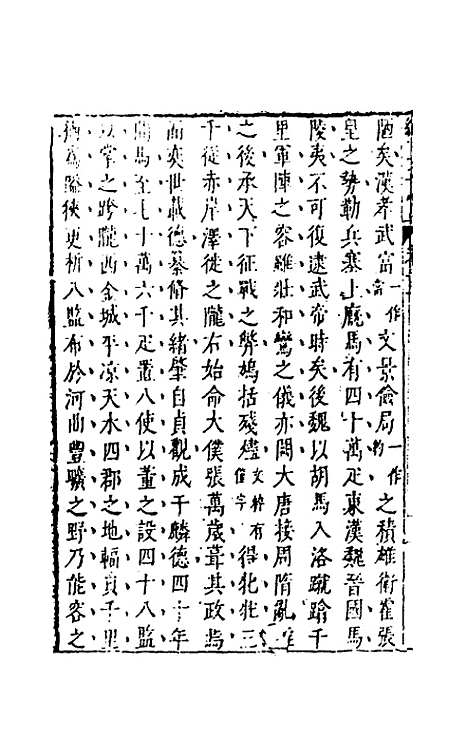 陋矣漢孝武富一作言文景儉局一作約之積雄衛霍張
皇之勢勒兵塞上廄馬有四十萬疋東漢魏晉國馬
陵夷不可復逮武帝時矣後魏以胡馬入洛蹴踰千
里軍陣之容雖壯和鸞之儀亦闕大唐接周隋亂離
之後承天下征戰之弊鳩括殘燼文粹有僅字得牝牡三
千從赤岸澤徙之隴右始命大僕張萬歲葺其政焉
而奕世載德纂脩其緒肇自貞觀成于麟德四十年
間馬至七十萬六千疋置八使以董之設四十八監
以掌之跨隴西金城平涼天水四郡之地幅員千里
猶為隘狹更析八監布於河曲豐曠之野乃能容之